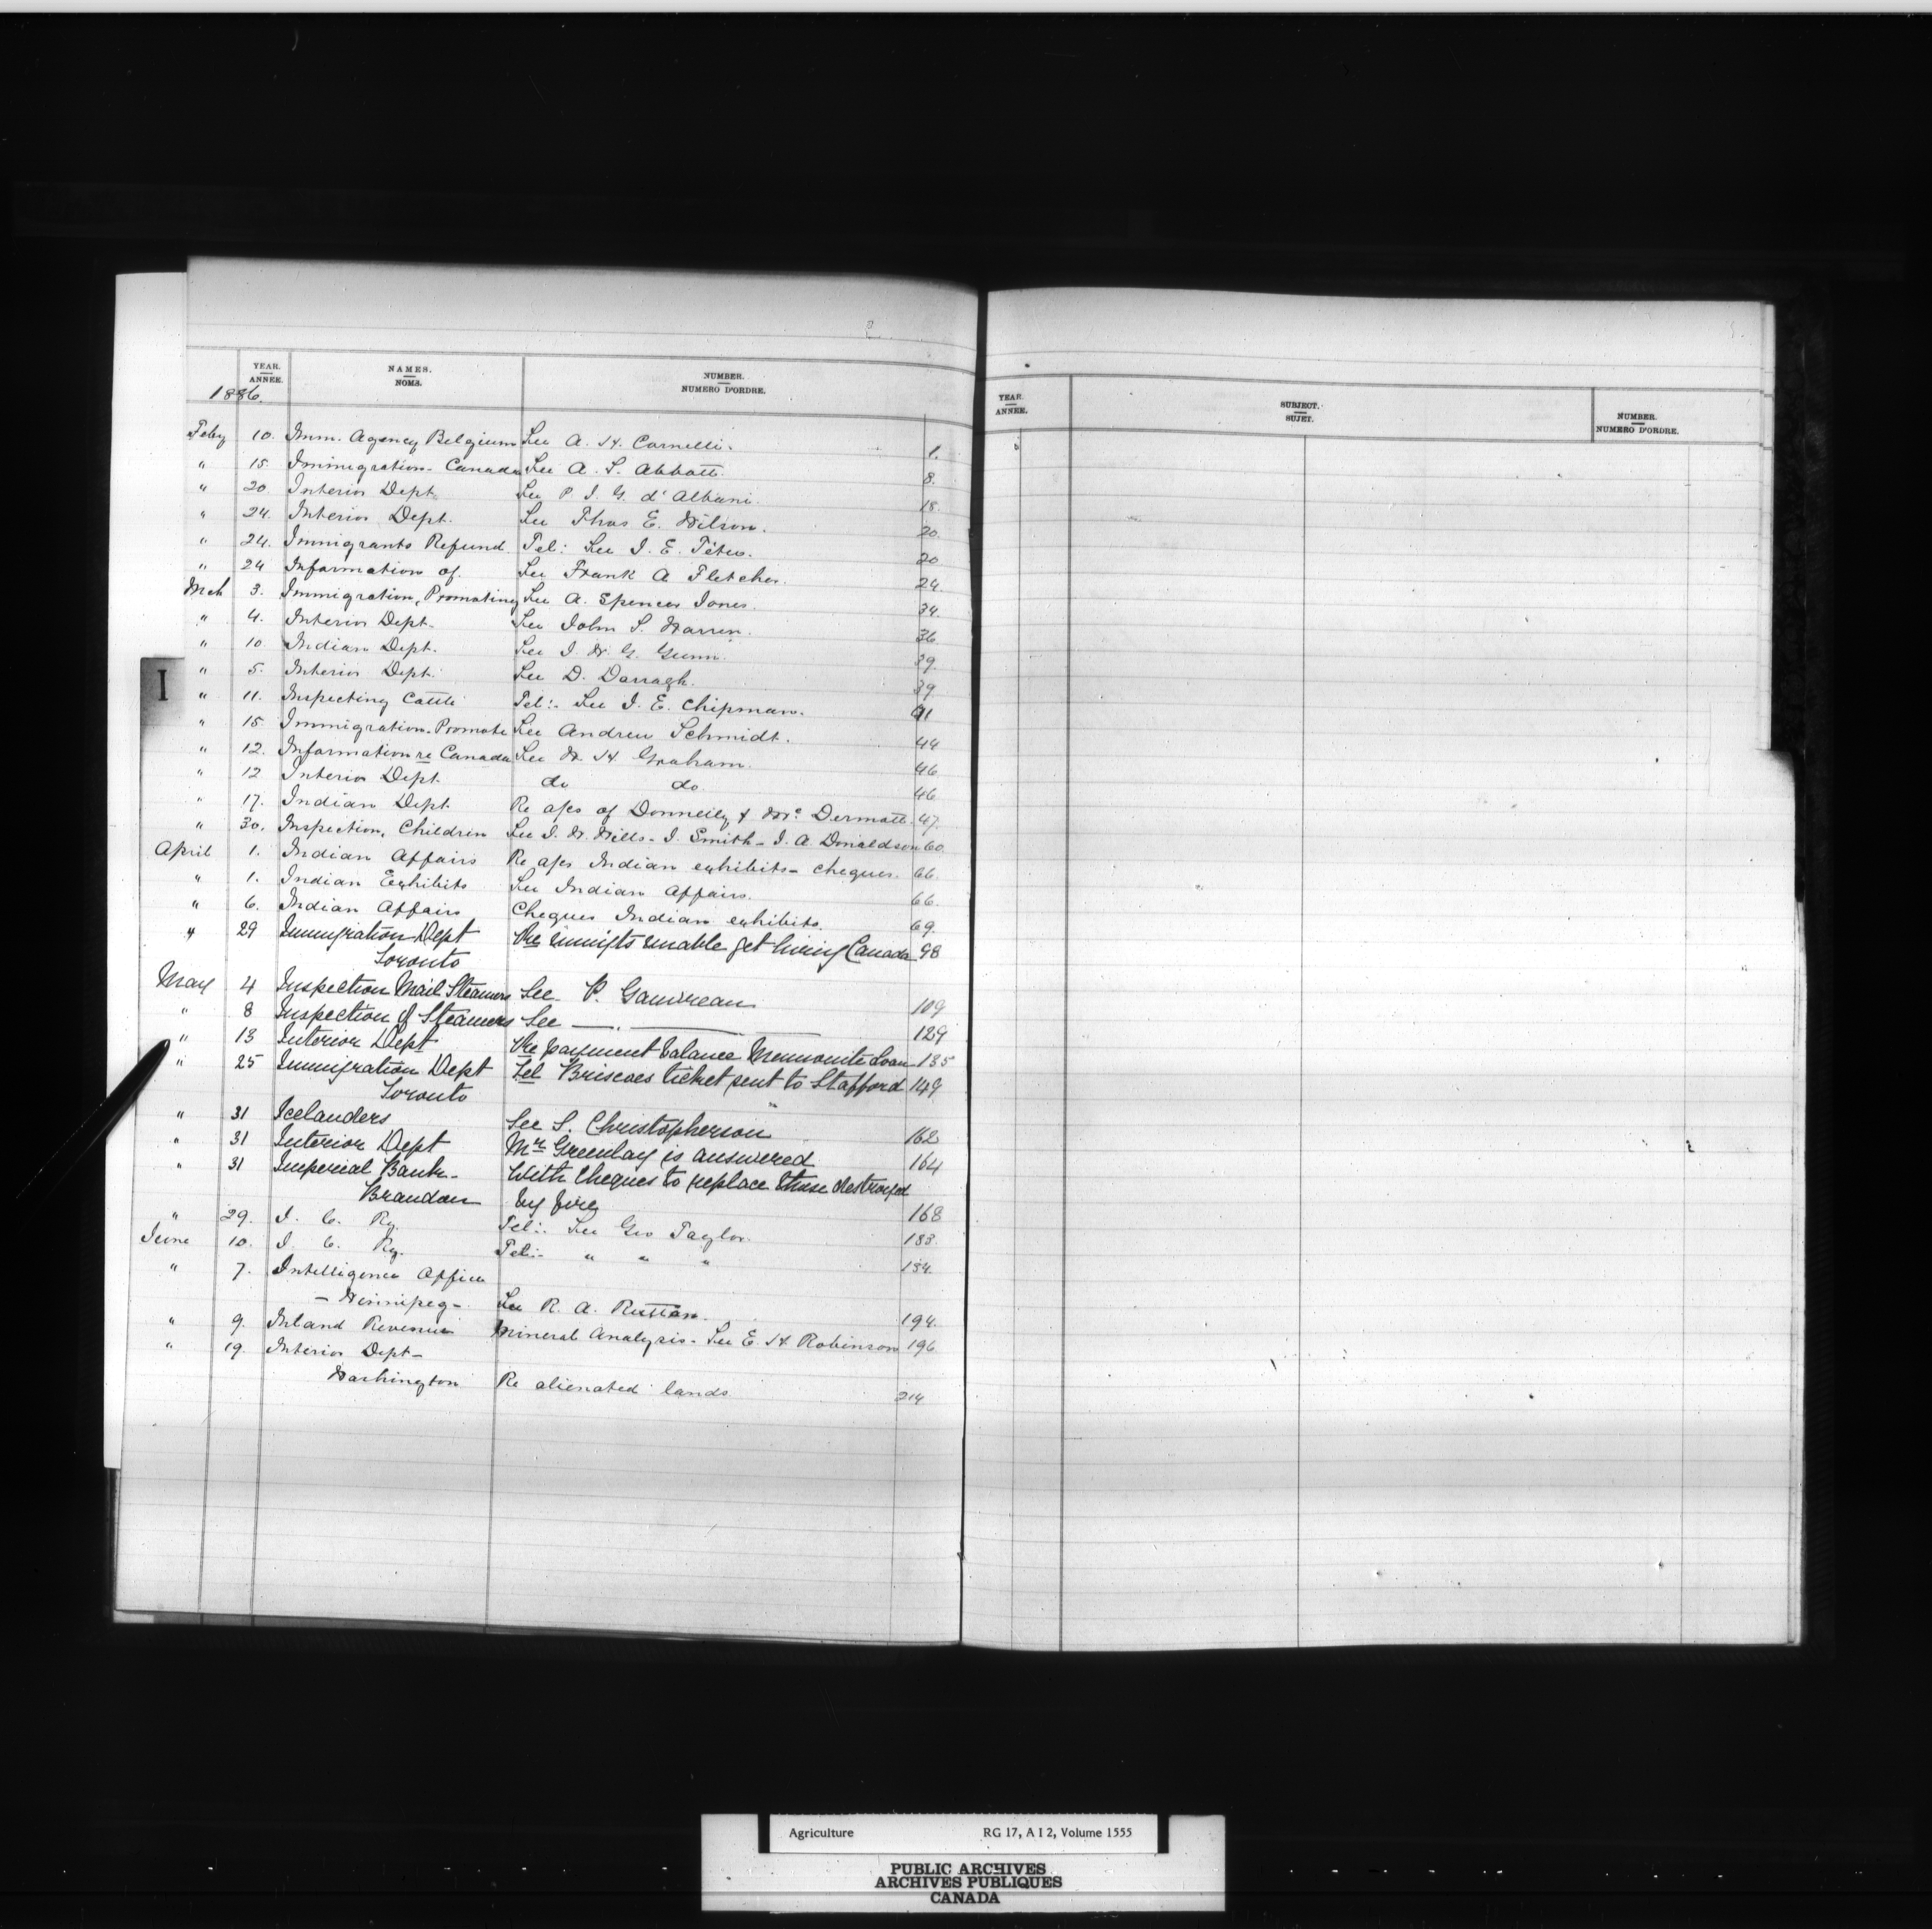 YEAR. ANNEE. NAMES. NOMS. NUMBER. NUMERO D'ORDRE.
1886.
Feby 10. Imm. Agency Belgium See A. H. Cornelli. 1.
" 15. Immigration - Canada See A. S. Abbott. 8.
" 20. Interior Dept. See P. I. G. d'Albani. 18.
" 24. Interior Dept. See Thos E. Wilson. 20.
" 24. Immigrants Refund. Tel: See J. E. Têtu. 20
" 24 Information of. See Frank A Fletcher. 24.
Mch 3. Immigration, Promoting See A. Spencer Jones. 34.
" 4. Interior Dept. See John S. Warren. 36.
" 10. Indian Dept. See J. W. G. Gunn. 39.
" 5. Interior Dept. See D. Darragh. 39
" 11. Inspecting Cattle Tel:- See J. E. Chipman. 41
" 15. Immigration. Promote See Andrew Schmidt. 44
" 12. Information re Canada See W. H. Graham. 46
" 12 Interior Dept. do do. 46
" 17. Indian Dept. Re a/cs of Donnelly & McDermott. 47.
" 30. Inspection, Children See J. W. Wills - J. Smith - J. A. Donaldson 60.
April 1. Indian Affairs Re a/cs Indian exhibits - cheques. 66.
" 1. Indian Exhibits See Indian Affairs. 66.
" 6. Indian Affairs Cheques Indian exhibits. 69.
" 29 Immigration Dept Re immigts unable get living Canada 98
Toronto
May 4 Inspection Mail Steamers See P. Gauvreau 109
" 8 Inspection of Steamers See — " — 129
" 13 Interior Dept Re payment balance Mennonite Loan 135
" 25 Immigration Dept Tel Briscoes ticket sent to Stafford 149
Toronto
" 31 Icelanders See S. Christopherson 162
" 31 Interior Dept Mr Greenlay is answered 164
" 31 Imperial Bank - With Cheques to replace those destroyed
Brandon by fire 168
" 29. I. C. Ry. Tel:- See Geo Taylor. 183.
June 10. I. C. Ry. Tel:- " " " 184.
" 7. Intelligence Office
- Winnipeg - See R. A. Ruttan. 194.
" 9. Inland Revenue Mineral Analysis - See E. H. Robinson 196
" 19. Interior Dept -
Washington Re alienated lands. 214
I
YEAR. ANNEE. SUBJECT. SUJET. NUMBER. NUMERO D'ORDRE.
Agriculture RG 17, A I 2, Volume 1555
PUBLIC ARCHIVES
ARCHIVES PUBLIQUES
CANADA